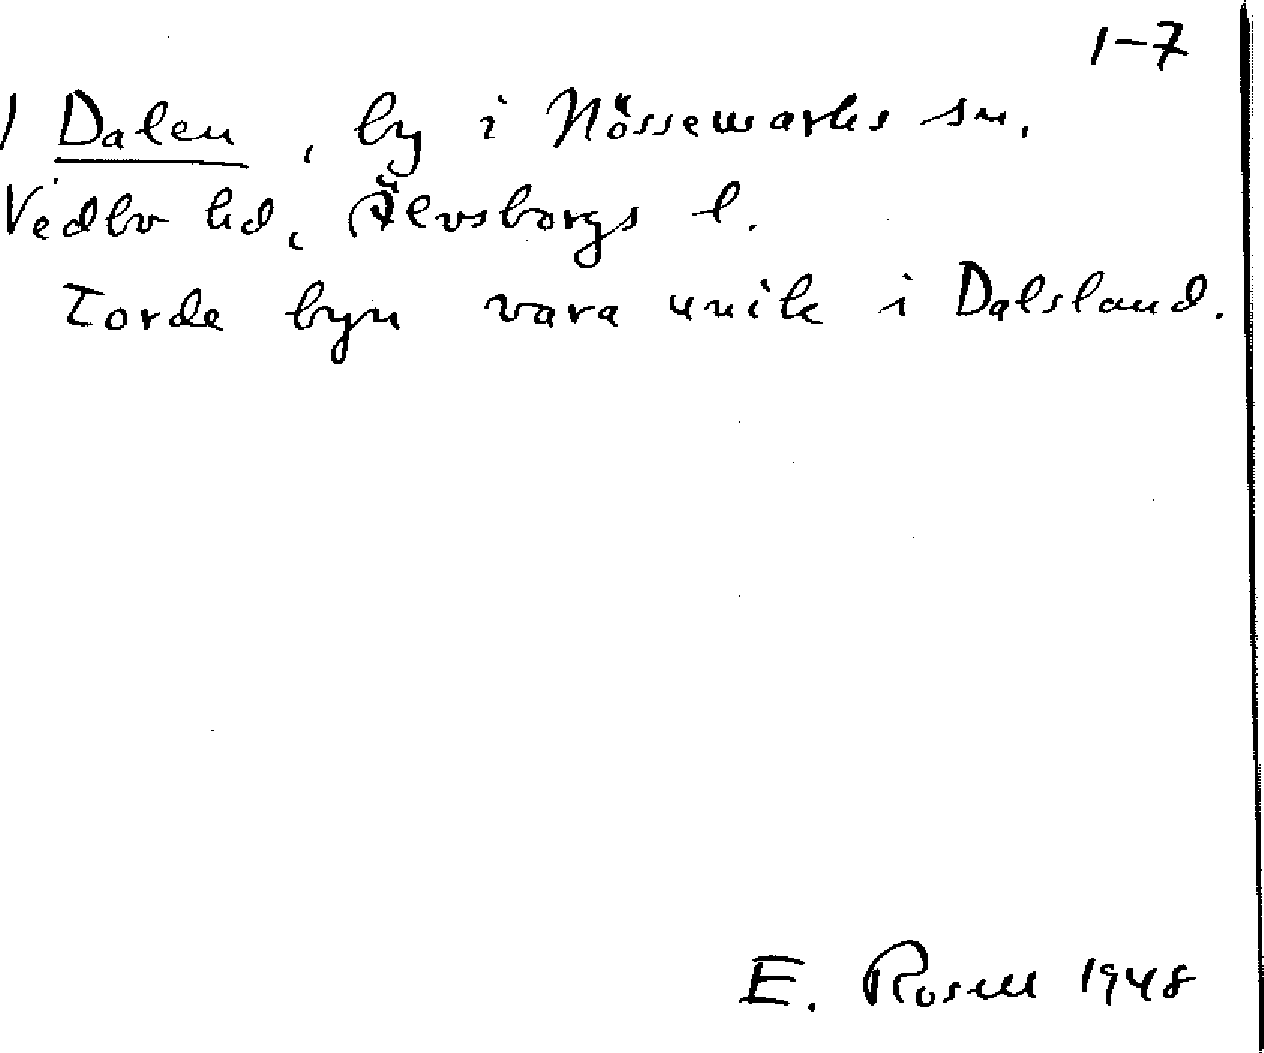 1-7
1 Dalen, by i Nössemarks sn,
Vedbo hd, Älvsborgs l.
Torde byn vara unik i Dalsland.
E. Rosell 1948